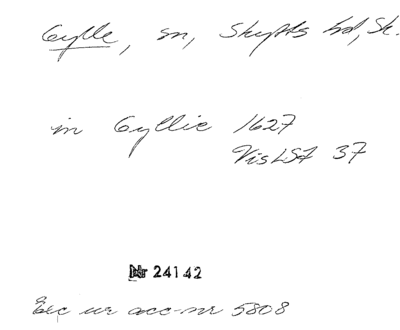 Gylle, sn, Skytts hd, Sk.
in Gyllie 1627
VisLSA 37
Nr 24142
Exc ur acc-nr 5808